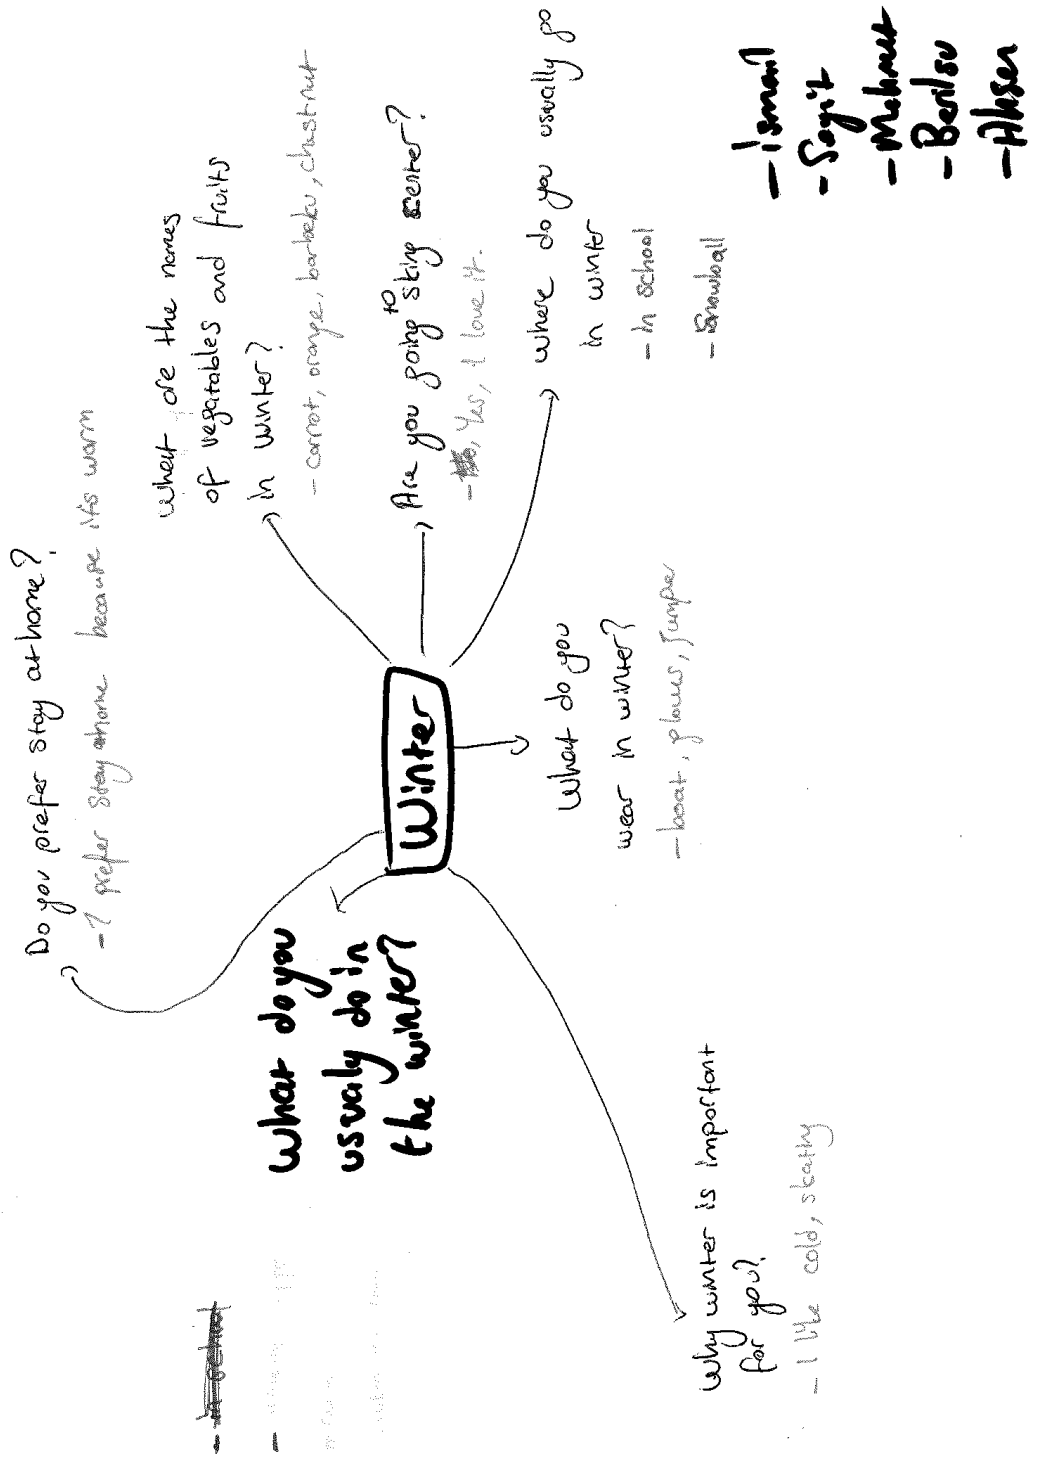 Do you prefer stay at home?
- I prefer stay at home because it's warm
What are the names
of vegatables and fruits
in winter?
- carrot, orange, barbeku, chestnut
Are you going to skiing center?
- Yes, I love it.
Where do you usually go
in winter
- In school
- Snowball
What do you
wear in winter?
- boat, gloves, jumper
Winter
What do you
usualy do in
the winter?
- In school
Why winter is important
for you?
- I like cold,
- ismail
- Sayit
- Mehmet
- Berilsu
- Ahsen